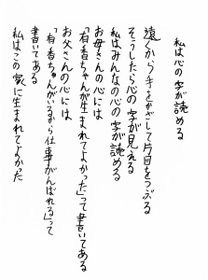 私は心の字が読める
遠くから手をかざして片目をつぶる
そうしたら心の字が見える
私はみんなの心の字が読める
お母さんの心には
「有香ちゃんが生まれてよかった」って書いてある
お父さんの心には
「有香ちゃんがいるから仕事がんばれる」って
書いてある
私はこの家に生まれてよかった